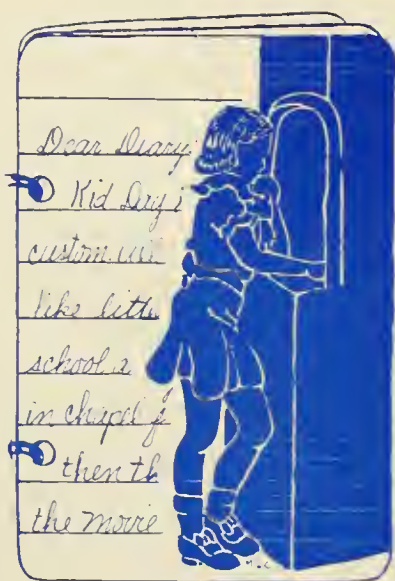 Dear Diary
Kid Day i
custom
like littl
school a
in chapel f
then th
the movie